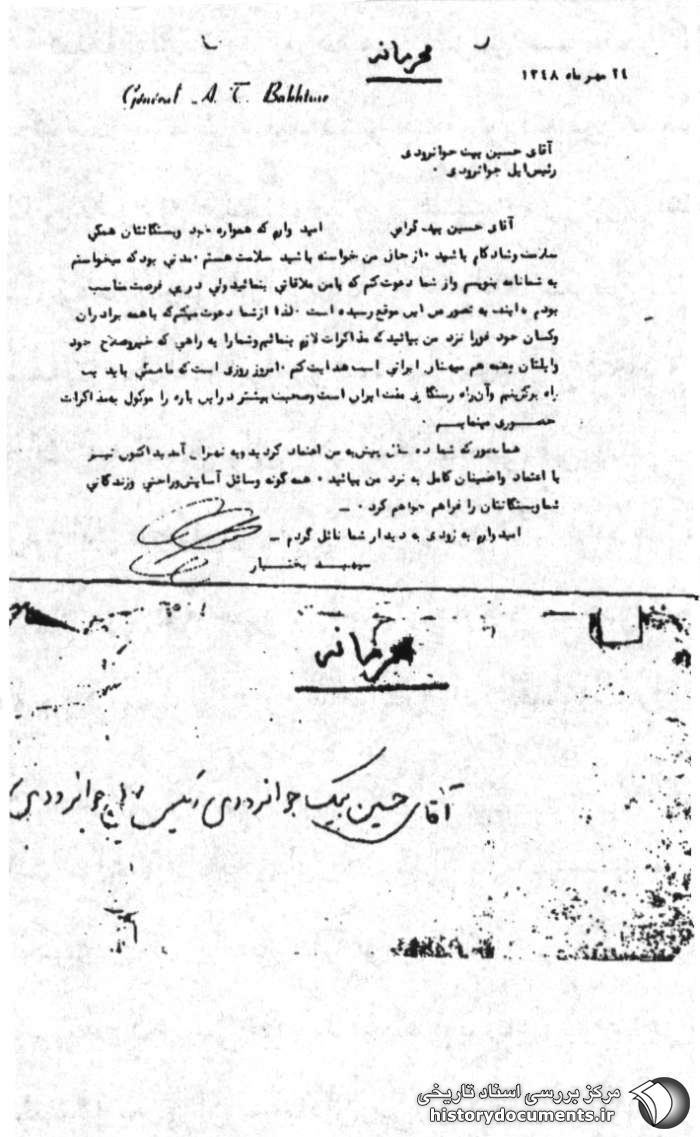 محرمانه
۲۴ مهر ماه ۱۳۴۸
Général A. T. Bakhtiar
آقای حسین بیک جوانرودی
رئیس ایل جوانرودی ۰
آقای حسین بیک گرامی امید وارم که همواره خود وبستگانتان همگی
سلامت وشاد کام باشید ۰ از حال من خواسته باشید سلامت هستم ۰ مدتی بود که میخواستم
به شما نامه بنویسم واز شما دعوت کنم که بامن ملاقاتی بنمائید ولی در پی فرصت مناسب
بودم به تصور من این موقع رسیده است ۰ لذا از شما دعوت میکنم که باهمه براد ران
وکسان خود فورا نزد من بیائید که مذاکرات لازم بنمائیم وشما را به راهی که خیر وصلاح خود
وایلتان وهمه هم میهنان ایرانی است هدایت کنم ۰ امروز روزی است که ما همگی باید یک
راه برگزینیم وآن راه رستگاری ملت ایران است وصحبت بیشتر در این باره را موکول به مذاکرات
حضوری مینمایم ۰
همانطور که شما ده سال پیش به من اعتماد کردید وبه تهران آمدید اکنون نیز
با اعتماد واطمینان کامل به نزد من بیائید ۰ همه گونه وسائل آسایش وراحتی وزندگانی
شما وبستگانتان را فراهم خواهم کرد ۰ ــ
امید وارم به زودی به دیدار شما نائل گردم ــ
سپهبد بختیار
محرمانه
آقای حسین بیک جوانرودی رئیس ایل جوانرودی
مرکز بررسی اسناد تاریخی
historydocuments.ir